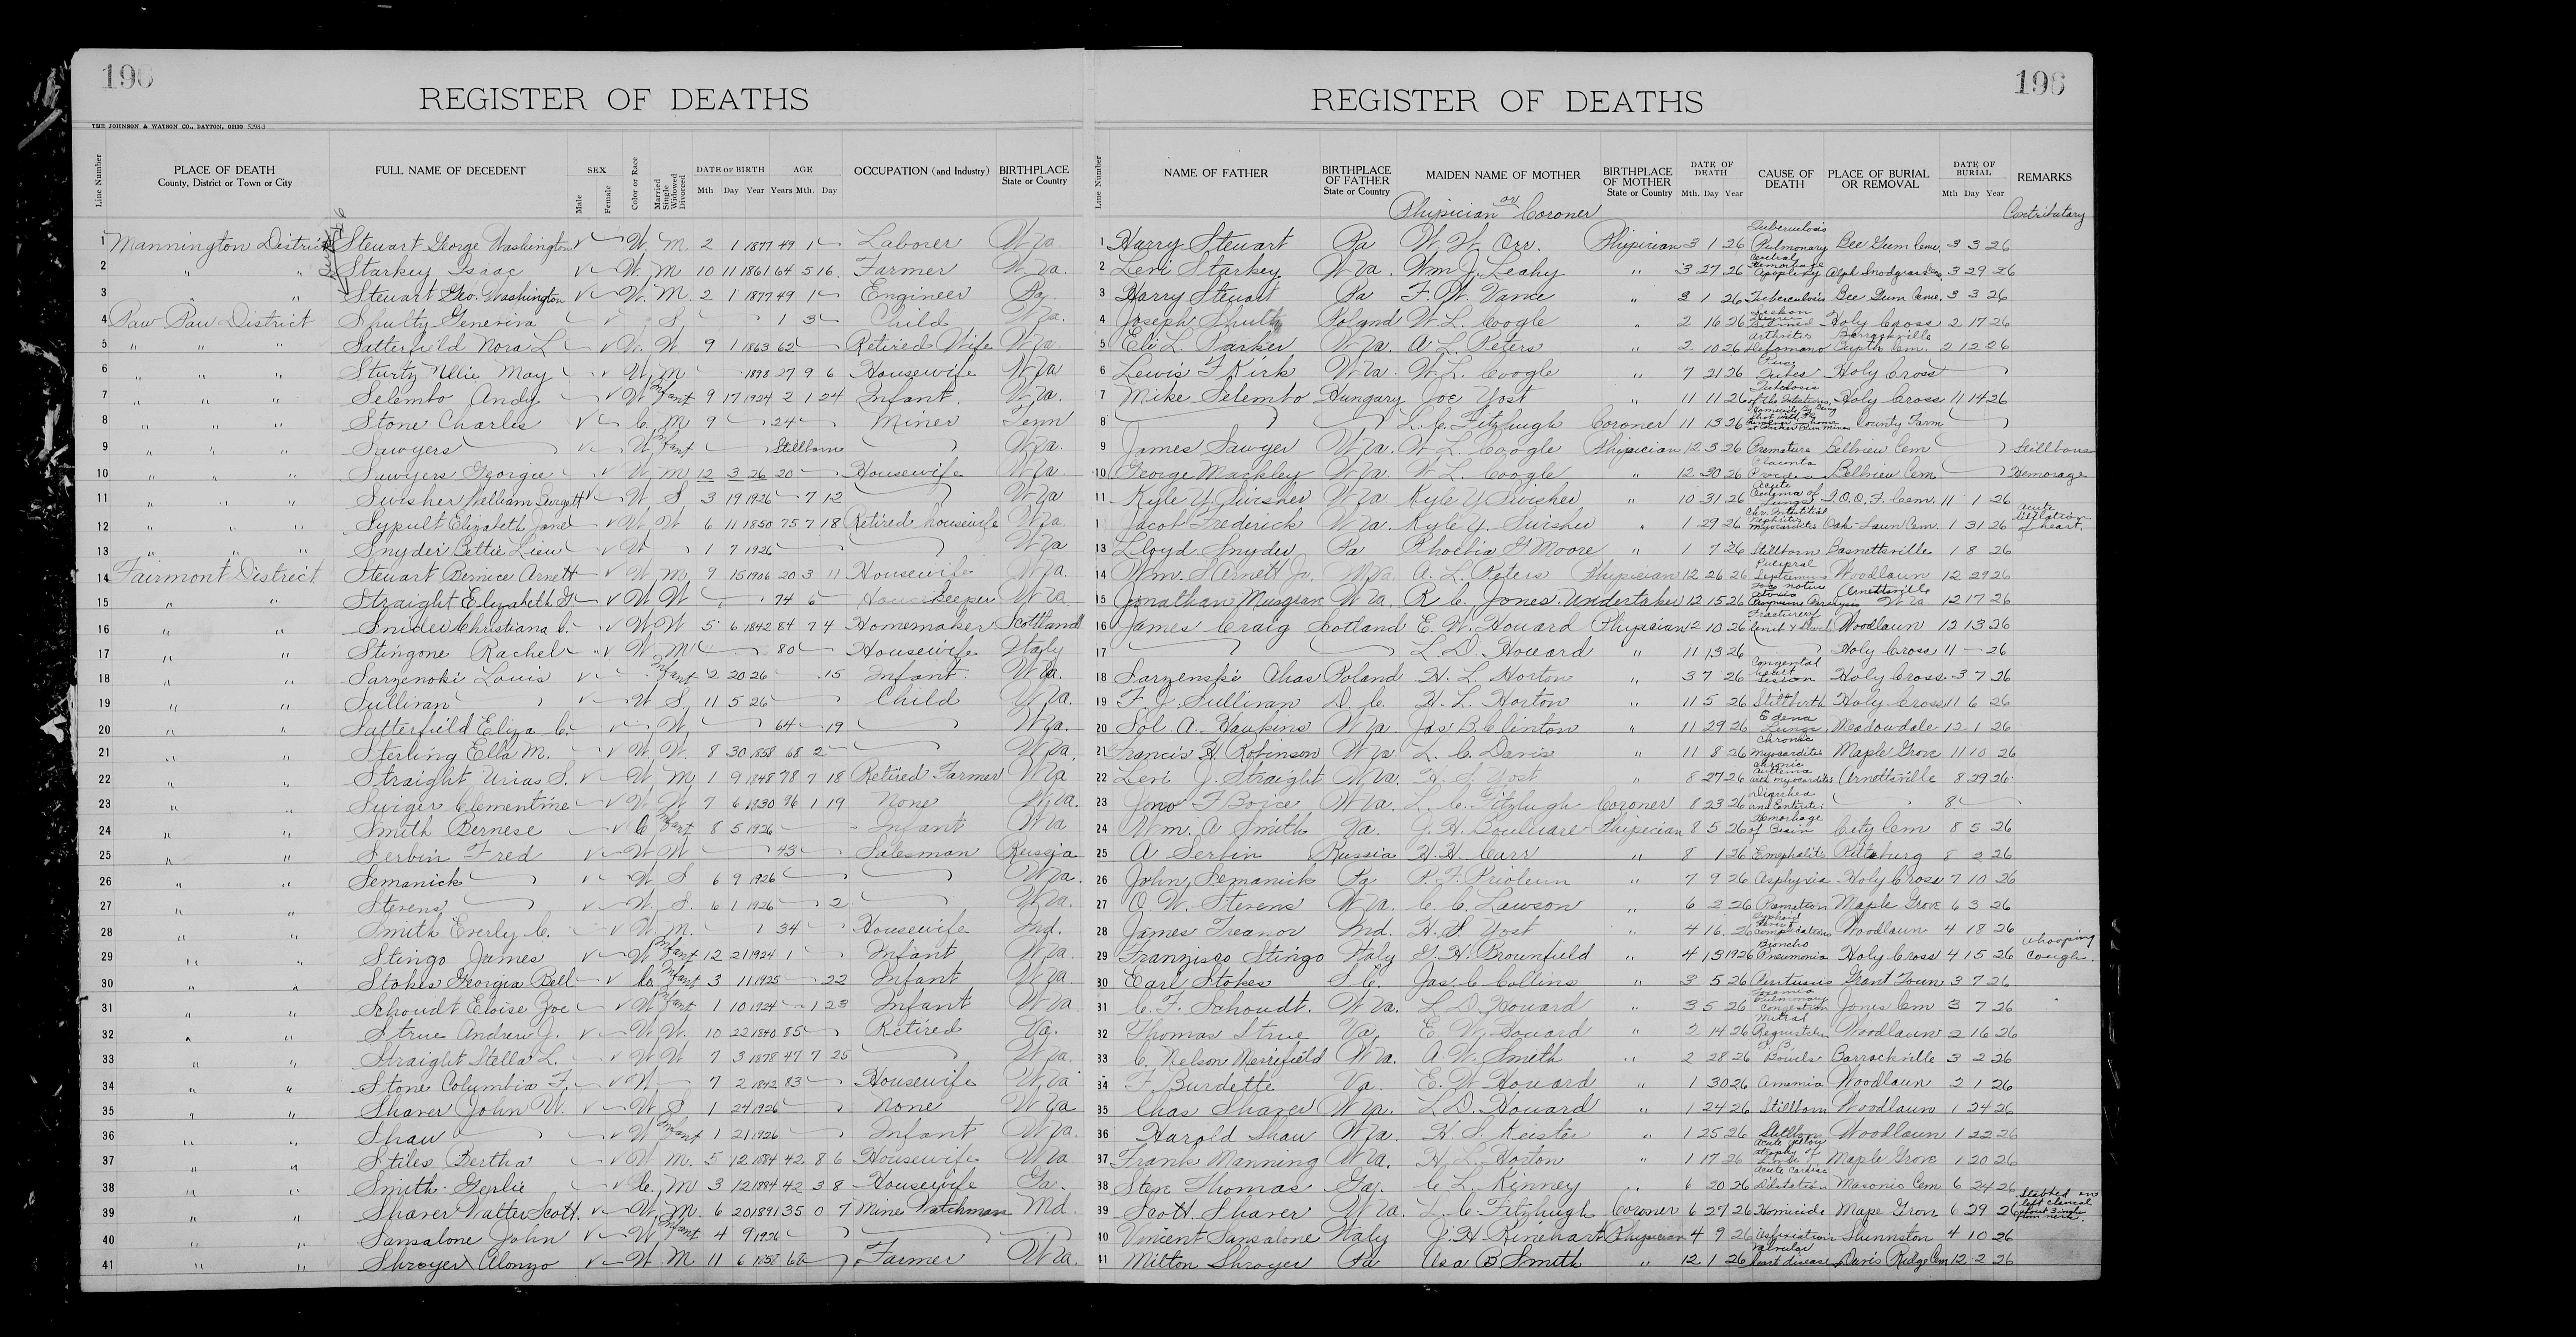 190
REGISTER OF DEATHS
THE JOHNSON & WATSON CO., DAYTON, OHIO 5298-3
Line Number PLACE OF DEATH County, District or Town or City FULL NAME OF DECEDENT SEX Male Female Color or Race Married Single Widowed Divorced DATE OF BIRTH Mth Day Year AGE Years Mth. Day OCCUPATION (and Industry) BIRTHPLACE State or Country
1 Mannington District Steuart George Washington W. M. 2 1 1877 49 1 Laborer W Va
2 " " Starkey Isaac W. M 10 11 1861 64 5 16 Farmer W Va.
3 " " Steuart Geo. Washington W. M. 2 1 1877 49 1 Engineer Pa
4 Paw Paw District Shulty Geneviva S 1 3 Child W Va.
5 " " " Satterfield Nora L W. W 9 1 1863 62 Retired Wife W Va
6 " " " Sturty Nellie May W M 1898 27 9 6 Housewife W Va
7 " " " Selembo Andy W Infant 9 17 1924 2 1 24 Infant. W Va.
8 " " " Stone Charles C. M 9 24 Miner Tenn
9 " " " Sawyers W Infant Stillborne W Va.
10 " " " Sawyers Georgie W M 12 3 26 20 Housewife W Va
11 " " " Swisher William W S 3 19 1926 7 12 W Va
12 " " " Sypult Elizabeth Jane W W 6 11 1850 75 7 18 Retired housewife W Va
13 " " " Snyder Bettie Lieu W 1 7 1926 W Va
14 Fairmont District Steuart Bernice Arnett W M 9 15 1906 20 3 11 Housewife W Va.
15 " " Straight Elizabeth W W 74 6 Housekeeper W Va
16 " " Snider Christiana C. W W 5 6 1842 84 7 4 Homemaker Scotland
17 " " Stingone Rachel W M 80 Housewife Italy
18 " " Sarzenoki Louis Infant 2 20 26 15 Infant W Va.
19 " " Sullivan W S. 11 5 26 Child W Va.
20 " " Satterfield Eliza C. W. 64 19 W Va.
21 " " Sterling Ella M. W. W. 8 30 1858 68 2 W Va
22 " " Straight Urias S. W M 1 9 1848 78 7 18 Retired Farmer W Va
23 " " Swiger Clementine W W 7 6 1930 96 1 19 None W Va.
24 " " Smith Bernese C Infant 8 5 1926 Infant W Va
25 " " Serbin Fred W W 43 Salesman Russia
26 " " Semanick W S 6 9 1926 W Va.
27 " " Stevens W. S. 6 1 1926 2 W Va.
28 " " Smith Everly C. W. M. 1 34 Housewife Ind.
29 " " Stingo James W Infant 12 21 1924 1 Infant W Va.
30 " " Stokes Georgia Bell Co. Infant 3 11 1925 22 Infant W Va
31 " " Schoudt Eloise Zoe W Infant 1 10 1924 1 23 Infant W Va
32 " " Strue Andrew J. W W. 10 22 1840 85 Retired Va.
33 " " Straight Stella L. W W 7 3 1878 47 7 25 W Va.
34 " " Stone Columbia F. W 7 2 1842 83 Housewife W Va
35 " " Shaver John W. W S 1 24 1926 none W Va
36 " " Shaw W Infant 1 21 1926 Infant W Va.
37 " " Stiles Bertha W M. 5 12 1884 42 8 6 Housewife W Va
38 " " Smith C. M 3 12 1884 42 3 8 Housewife Ga.
39 " " Shaver Walter Scott. W. M. 6 20 1891 35 0 7 Mine Watchman Md.
40 " " Sansalone John W Infant 4 9 1926
41 " " Shroyer Alonzo W M 11 6 1858 68 Farmer W Va.
196
REGISTER OF DEATHS
Line Number NAME OF FATHER BIRTHPLACE OF FATHER State or Country MAIDEN NAME OF MOTHER BIRTHPLACE OF MOTHER State or Country DATE OF DEATH Mth. Day Year CAUSE OF DEATH PLACE OF BURIAL OR REMOVAL DATE OF BURIAL Mth Day Year REMARKS
Phipician or Coroner Contributary
1 Harry Steuart Pa W. W. Orr. Phipician 3 1 26 Tuberculosis Pulmonary Bee Gum Ceme. 3 3 26
2 Levi Starkey W Va. Wm J. Leahy " 3 27 26 Apoplexy 3 29 26
3 Harry Steuart Pa F. W. Vance " 3 1 26 Tuberculosis Bee Gum Ceme. 3 3 26
4 Joseph Shulty Poland W L. Coogle " 2 16 26 Holy Cross 2 17 26
5 Eli L. Parker W Va. A L. Peters " 2 10 26 Arthritis Barrackville 2 12 26
6 Lewis F Kirk W Va. W. L. Coogle " 7 21 26 Holy Cross
7 Mike Selembo Hungary Joe Yost " 11 11 26 Holy Cross 11 14 26
8 L. C. Fitzhugh Coroner 11 13 26 County Farm
9 James Sawyer W Va. W L. Coogle Phipician 12 3 26 Premature Bellview Cem Stillborn
10 George Mackley W Va. W L. Coogle " 12 30 26 Placenta Bellview Cem. Hemorage
11 Kyle Y. Swisher W Va Kyle Y Swisher " 10 31 26 Acute Oedema of Lungs I. O. O. F. Cem. 11 1 26
1 Jacob Frederick W Va. Kyle Y. Swisher " 1 29 26 Chr. Intestitial Nephritis Myocarditis Oak-Lawn Cem. 1 31 26 acute dilation of heart.
13 Lloyd Snyder Pa Phoebia G Moore " 1 7 26 Stillborn Basnettsville 1 8 26
14 Wm. S Arnett Jr. W Va. A. L. Peters Phipician 12 26 26 Woodlawn 12 29 26
15 Jonathan Musgrave W Va. R C. Jones. Undertaker 12 15 26 Arnettsville W Va 12 17 26
16 James Craig Scotland E. W. Howard Phipician 12 10 26 Woodlawn 12 13 26
17 L. D. Howard " 11 13 26 Holy Cross 11 26
18 Sarzenski Chas Poland H. L. Horton " 3 7 26 Congental Heart Lesion Holy Cross. 3 7 26
19 F. J. Sullivan D. C. H. L. Horton " 11 5 26 Stillbirth Holy Cross 11 6 26
20 Sol. A. Hawkins W Va. Jas B. Clinton " 11 29 26 Edema Lungs Meadowdale 12 1 26
21 Francis H. Robinson W Va L. C. Davis " 11 8 26 Chronic Myocarditis Maple Grove 11 10 26
22 Levi J. Straight W Va. H. S. Yost " 8 27 26 with myocarditis Arnettsville 8 29 26
23 Jono F Boice W Va. L. C. Fitzhugh Coroner 8 23 26 Diarrhea and Enteritis 8
24 Wm. A Smith Va. J. H. Boulware Phipician 8 5 26 Hemorhage of Brain City Cem 8 5 26
25 A Serbin Russia H. H. Carr " 8 1 26 Emephalits Pittsburg 8 2 26
26 John Semanick Pa P. F. Prioleun " 7 9 26 Asphyxia Holy Cross 7 10 26
27 O. W. Stevens W Va. C. C. Lawson " 6 2 26 Maple Grove 6 3 26
28 James Treanor Md. H. S. Yost " 4 16 26 Woodlawn 4 18 26
29 Franzisco Stingo Italy G. H. Brownfield " 4 13 1926 Broncho Pneumonia Holy Cross 4 15 26 whooping cough.
30 Earl Stokes S. C. Jas. C Collins " 3 5 26 Pertussis Grant Town 3 7 26
31 C. F. Schoudt. W Va. L D. Howard " 3 5 26 Pulmonary Congestion Jones Cem 3 7 26
32 Thomas Strue Va. E. W. Howard " 2 14 26 Mitral Woodlawn 2 16 26
33 C. Nelson Merrifield W Va. A. W. Smith " 2 28 26 T. B. Bowels Barrackville 3 2 26
34 F. Burdette Va. E. W Howard " 1 30 26 Anemia Woodlawn 2 1 26
35 Chas Shaver W Va. L D. Howard " 1 24 26 Stillborn Woodlawn 1 24 26
36 Harold Shaw W Va. H. S. Keister " 1 25 26 Stillborn Woodlawn 1 22 26
37 Frank Manning W Va. H. L. Horton " 1 17 26 Acute yellow atrophy of Liver Maple Grove 1 20 26
38 Steve Thomas Ga. C. L. Kinney " 6 20 26 Acute Cardiac Dilatation Masonic Cem 6 24 26
39 Scott Shaver W Va. L. C. Fitzhugh Coroner 6 27 26 Homicide Mape Grove 6 29 26 Stabbed
40 Vincent Sansalone Italy J. H. Rinehart Phipician 4 9 26 Shinnston 4 10 26
41 Milton Shroyer Pa Asa B Smith " 12 1 26 Valvular heart disease Davis Ridge Cem 12 2 26